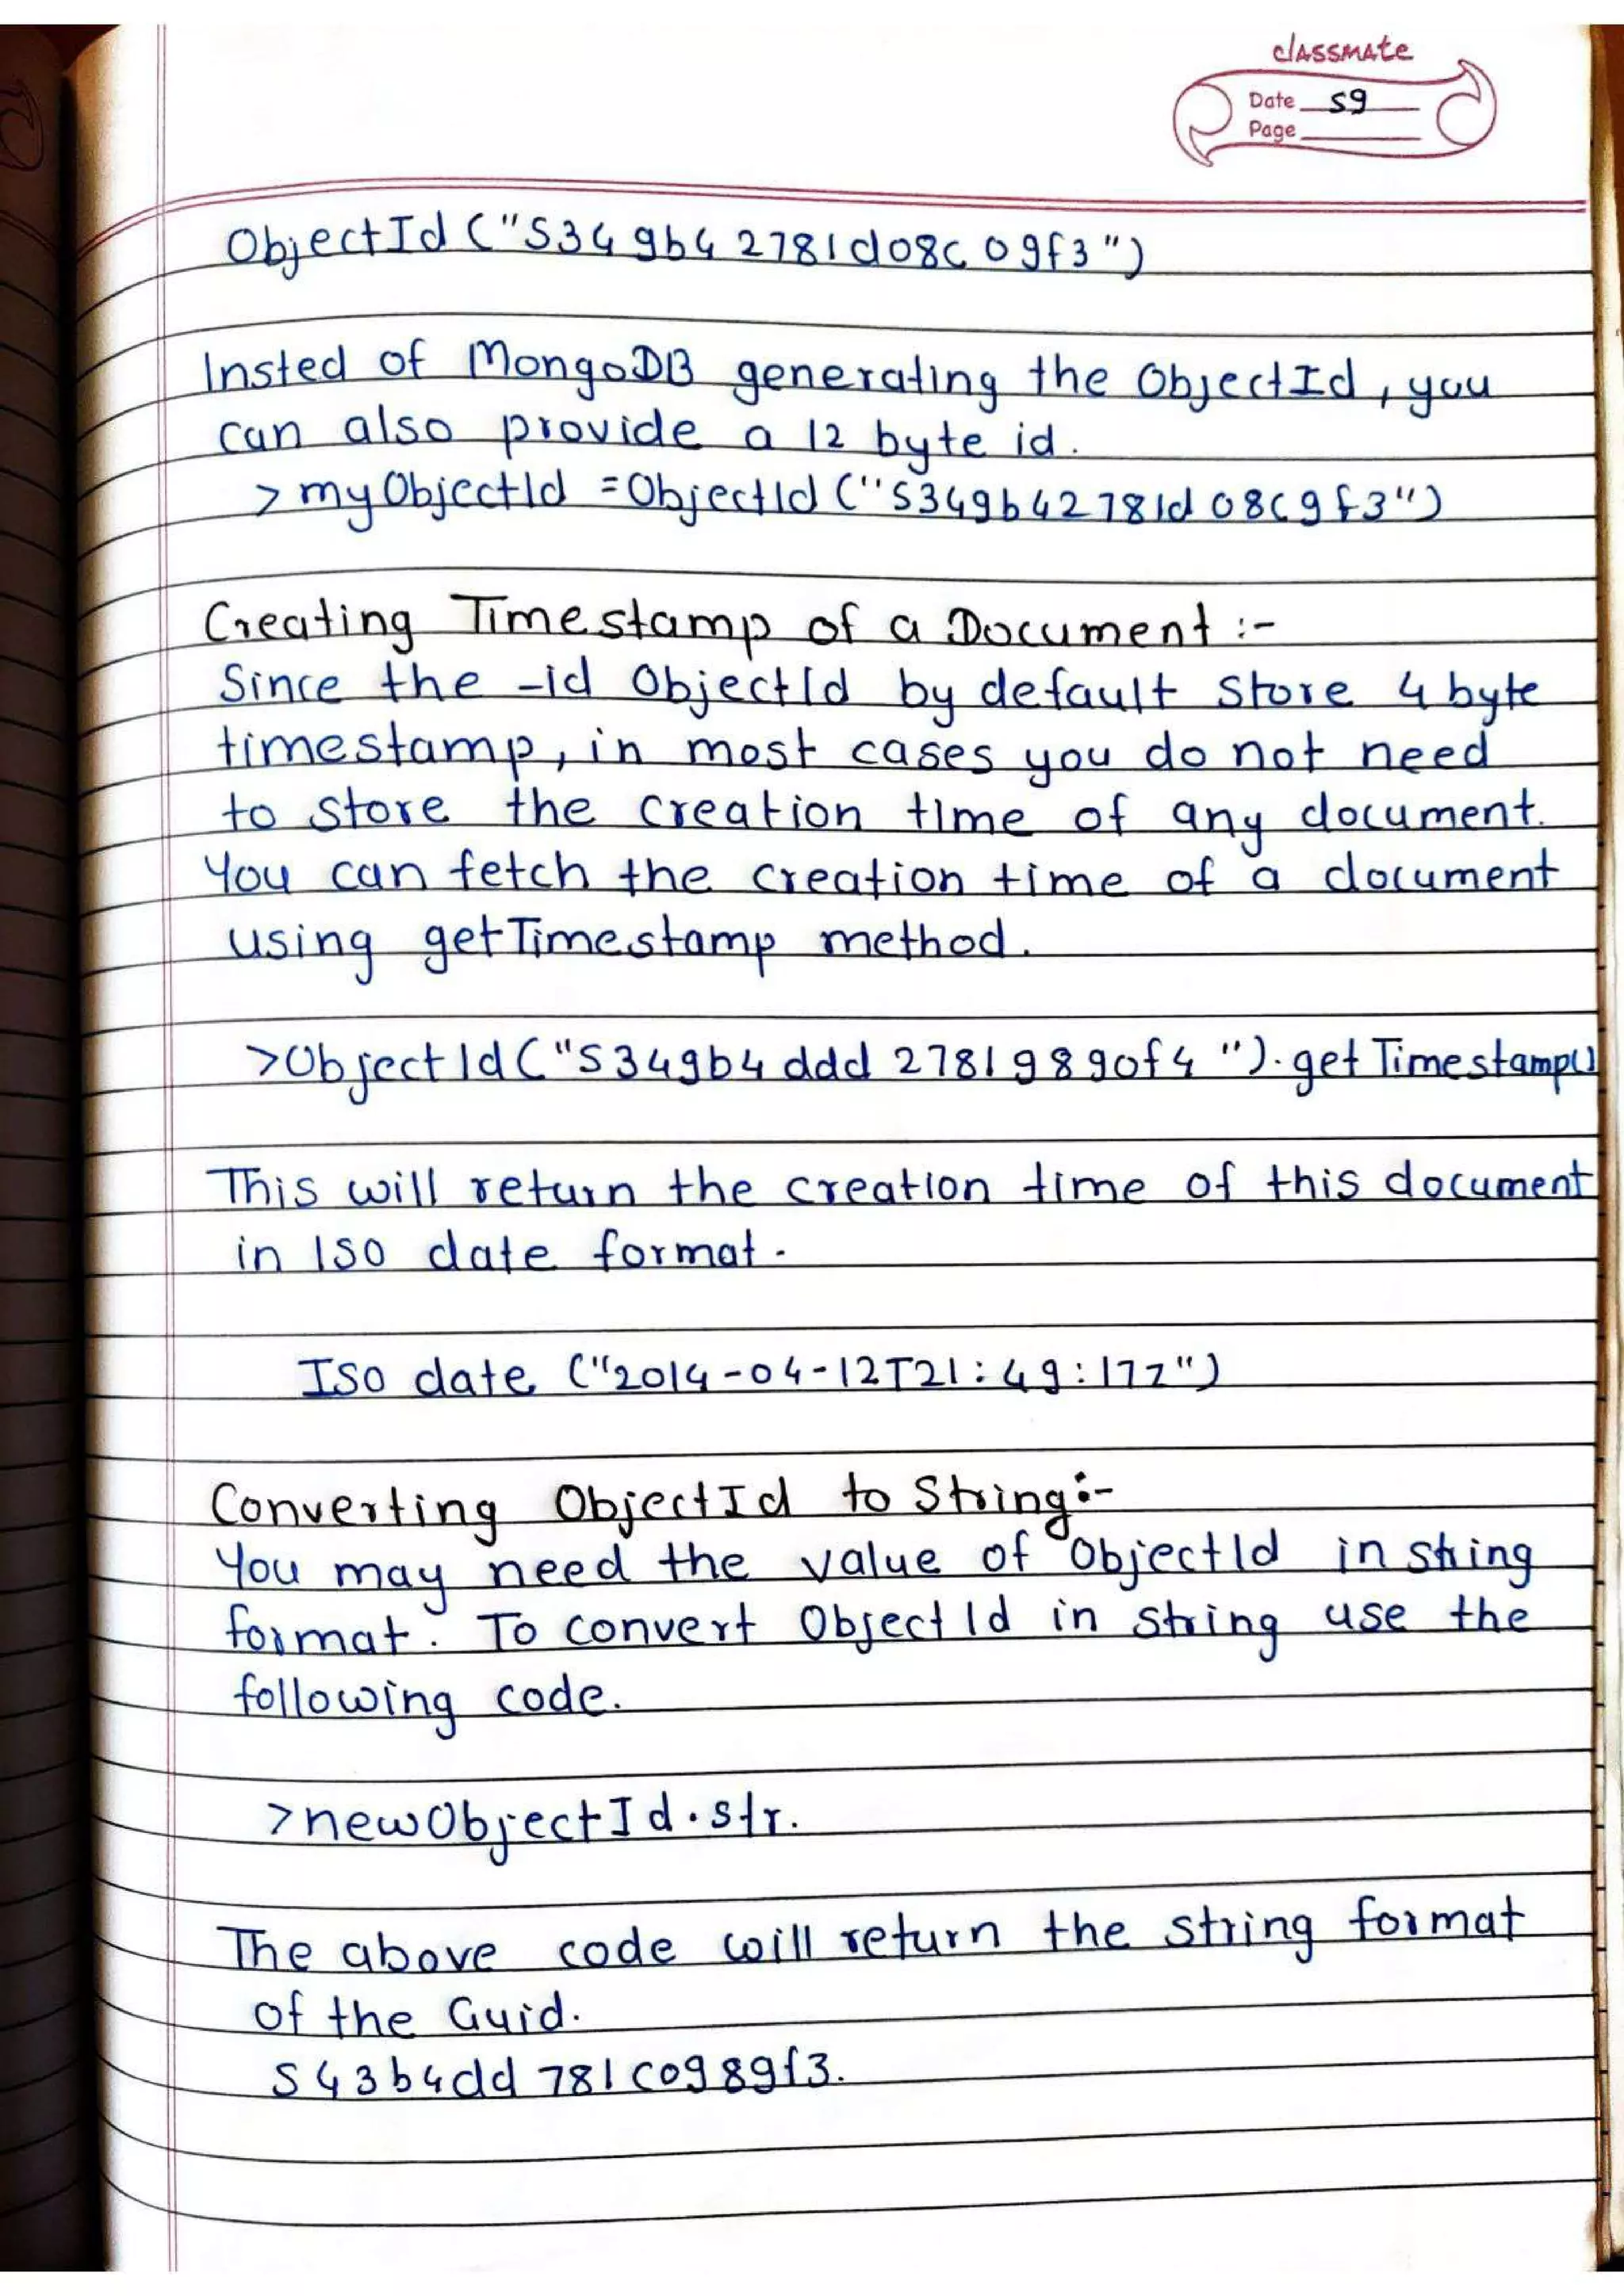 classmate
Date 59
Page
ObjectId ("5349b42781d08c09f3")
Insted of MongoDB generating the ObjectId, you
can also provide a 12 byte id.
> myObjectId = ObjectId ("5349b42781d08c9f3")
Creating Timestamp of a Document :-
Since the _id ObjectId by default store 4 byte
timestamp, in most cases you do not need
to store the creation time of any document.
You can fetch the creation time of a document
using getTimestamp method.
>ObjectId ("5349b4ddd2781989of4").getTimestamp()
This will return the creation time of this document
in ISO date format.
ISO date ("2014-04-12T21:49:17Z")
Converting ObjectId to String:-
You may need the value of ObjectId in string
format. To convert ObjectId in string use the
following code.
>newObjectId.str.
The above code will return the string format
of the Guid.
543b4dd781c0989f3.